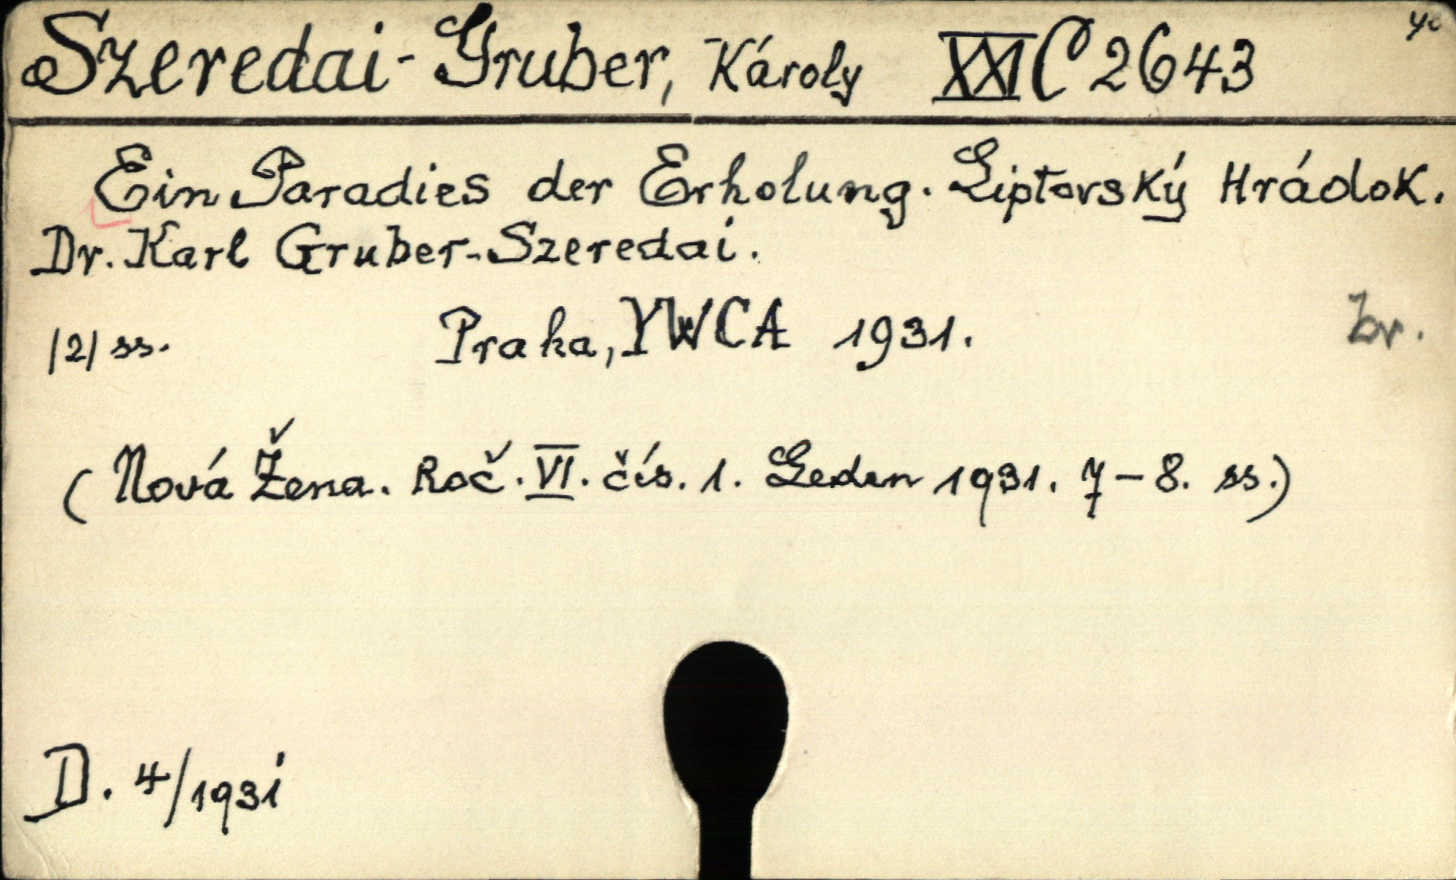 Szeredai-Gruber, Károly XXI C 2643
Ein Paradies der Erholung. Liptovský Hrádok.
Dr. Karl Gruber-Szeredai.
/2/ ss. Praha, YWCA 1931.
(Nová Žena. Roč. VI. čís. 1. Leden 1931. 7-8. ss.)
D. 4/1931